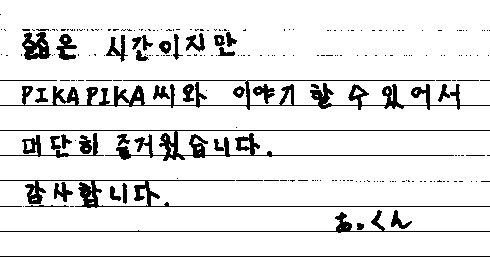 짧은 시간이지만
PIKAPIKA씨와 이야기 할 수 있어서
대단히 즐거웠습니다.
감사합니다.
あっくん